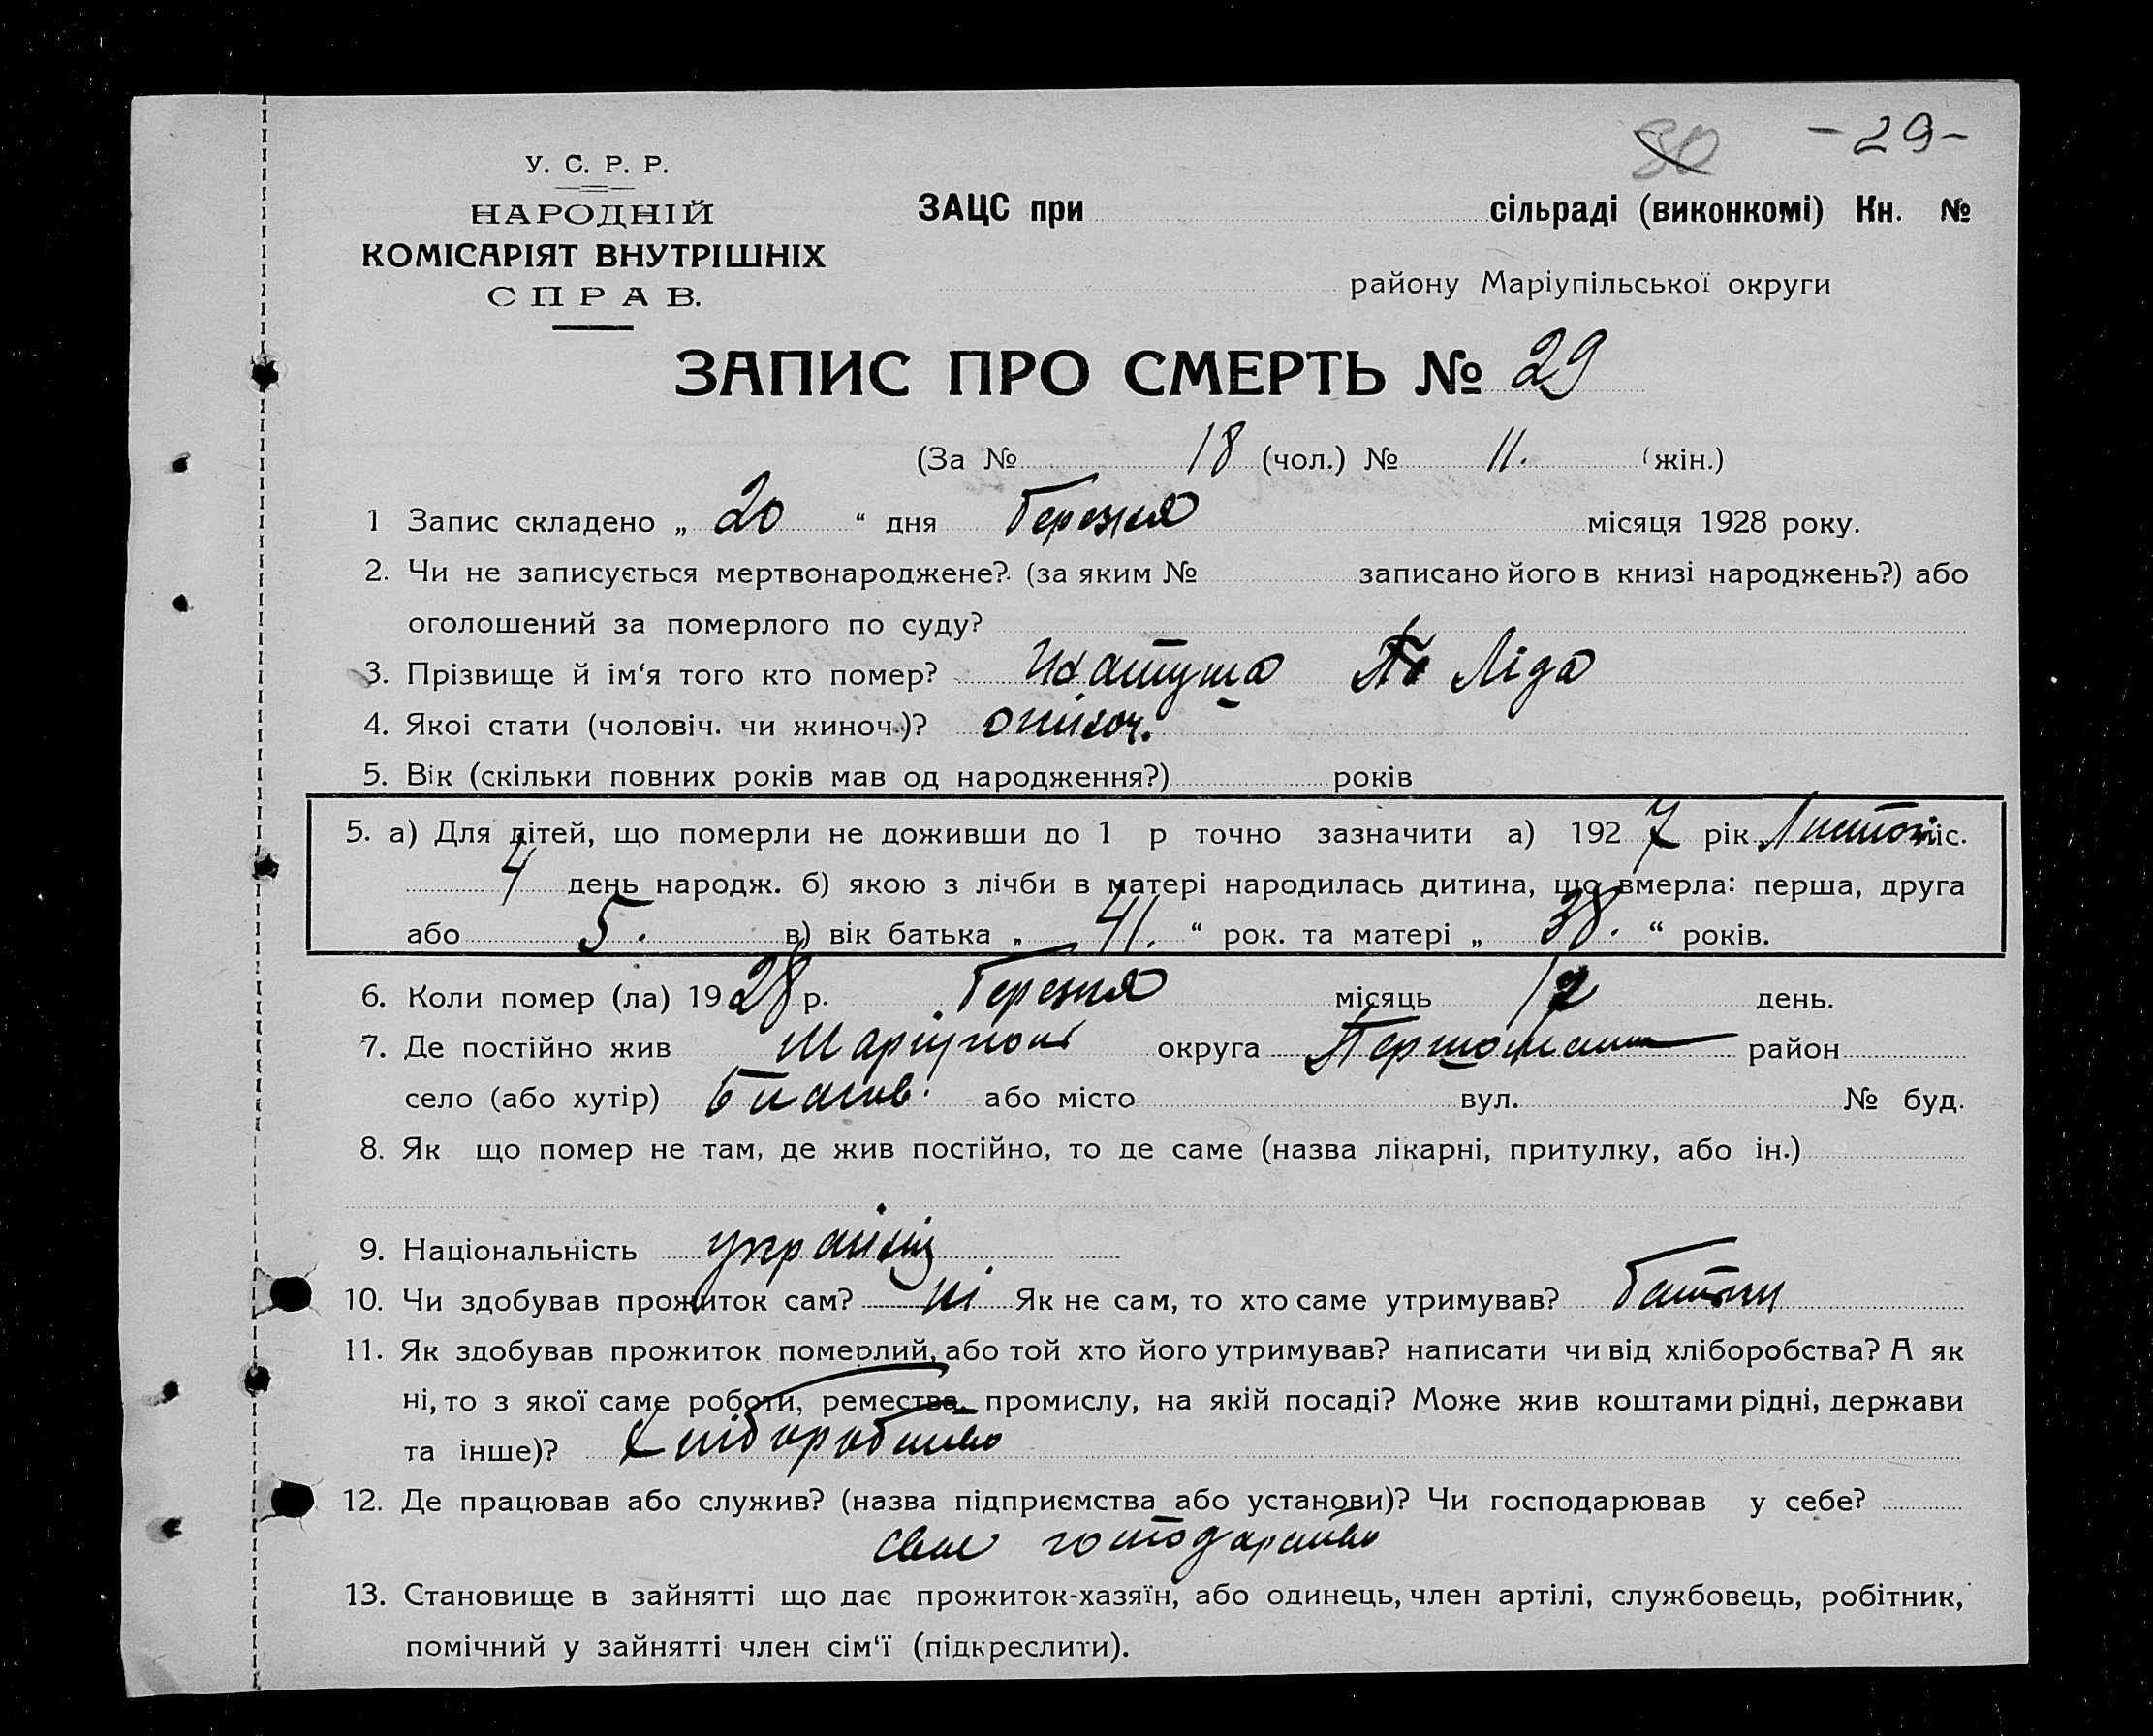 80 -29-
У. С. Р. Р.
НАРОДНІЙ
КОМІСАРІЯТ ВНУТРІШНІХ
СПРАВ.
ЗАЦС при сільраді (виконкомі) Кн. №
району Маріупільської округи
ЗАПИС ПРО СМЕРТЬ № 29
(За № 18 (чол.) № 11. (жін.)
1 Запис складено „ 20 “ дня Березня місяця 1928 року.
2. Чи не записується мертвонароджене? (за яким № записано його в книзі народжень?) або
оголошений за померлого по суду?
3. Прізвище й ім‘я того кто помер? Ліда
4. Якоі стати (чоловіч. чи жиноч.)? жіноч.
5. Вік (скільки повних років мав од народження?) років
5. а) Для дітей, що померли не доживши до 1 р точно зазначити а) 1927 рік Листоп міс.
4 день народж. б) якою з лічби в матері народилась дитина, що вмерла: перша, друга
або 5. в) вік батька „ 41. “ рок. та матері „ 38. “ років.
6. Коли помер (ла) 1928 р. Березня місяць 12 день.
7. Де постійно жив Маріупол округа район
село (або хутір) або місто вул. № буд.
8. Як що помер не там, де жив постійно, то де саме (назва лікарні, притулку, або ін.)
9. Національність україн
10. Чи здобував прожиток сам? ні Як не сам, то хто саме утримував? батьки
11. Як здобував прожиток померлий, або той хто його утримував? написати чи від хліборобства? А як
ні, то з якої саме роботи, ремества, промислу, на якій посаді? Може жив коштами рідні, держави
та інше)? Хліборобство
12. Де працював або служив? (назва підприємства або установи)? Чи господарював у себе?
своє господарство
13. Становище в зайнятті що дає прожиток-хазяїн, або одинець, член артілі, службовець, робітник,
помічний у зайнятті член сім‘ї (підкреслити).